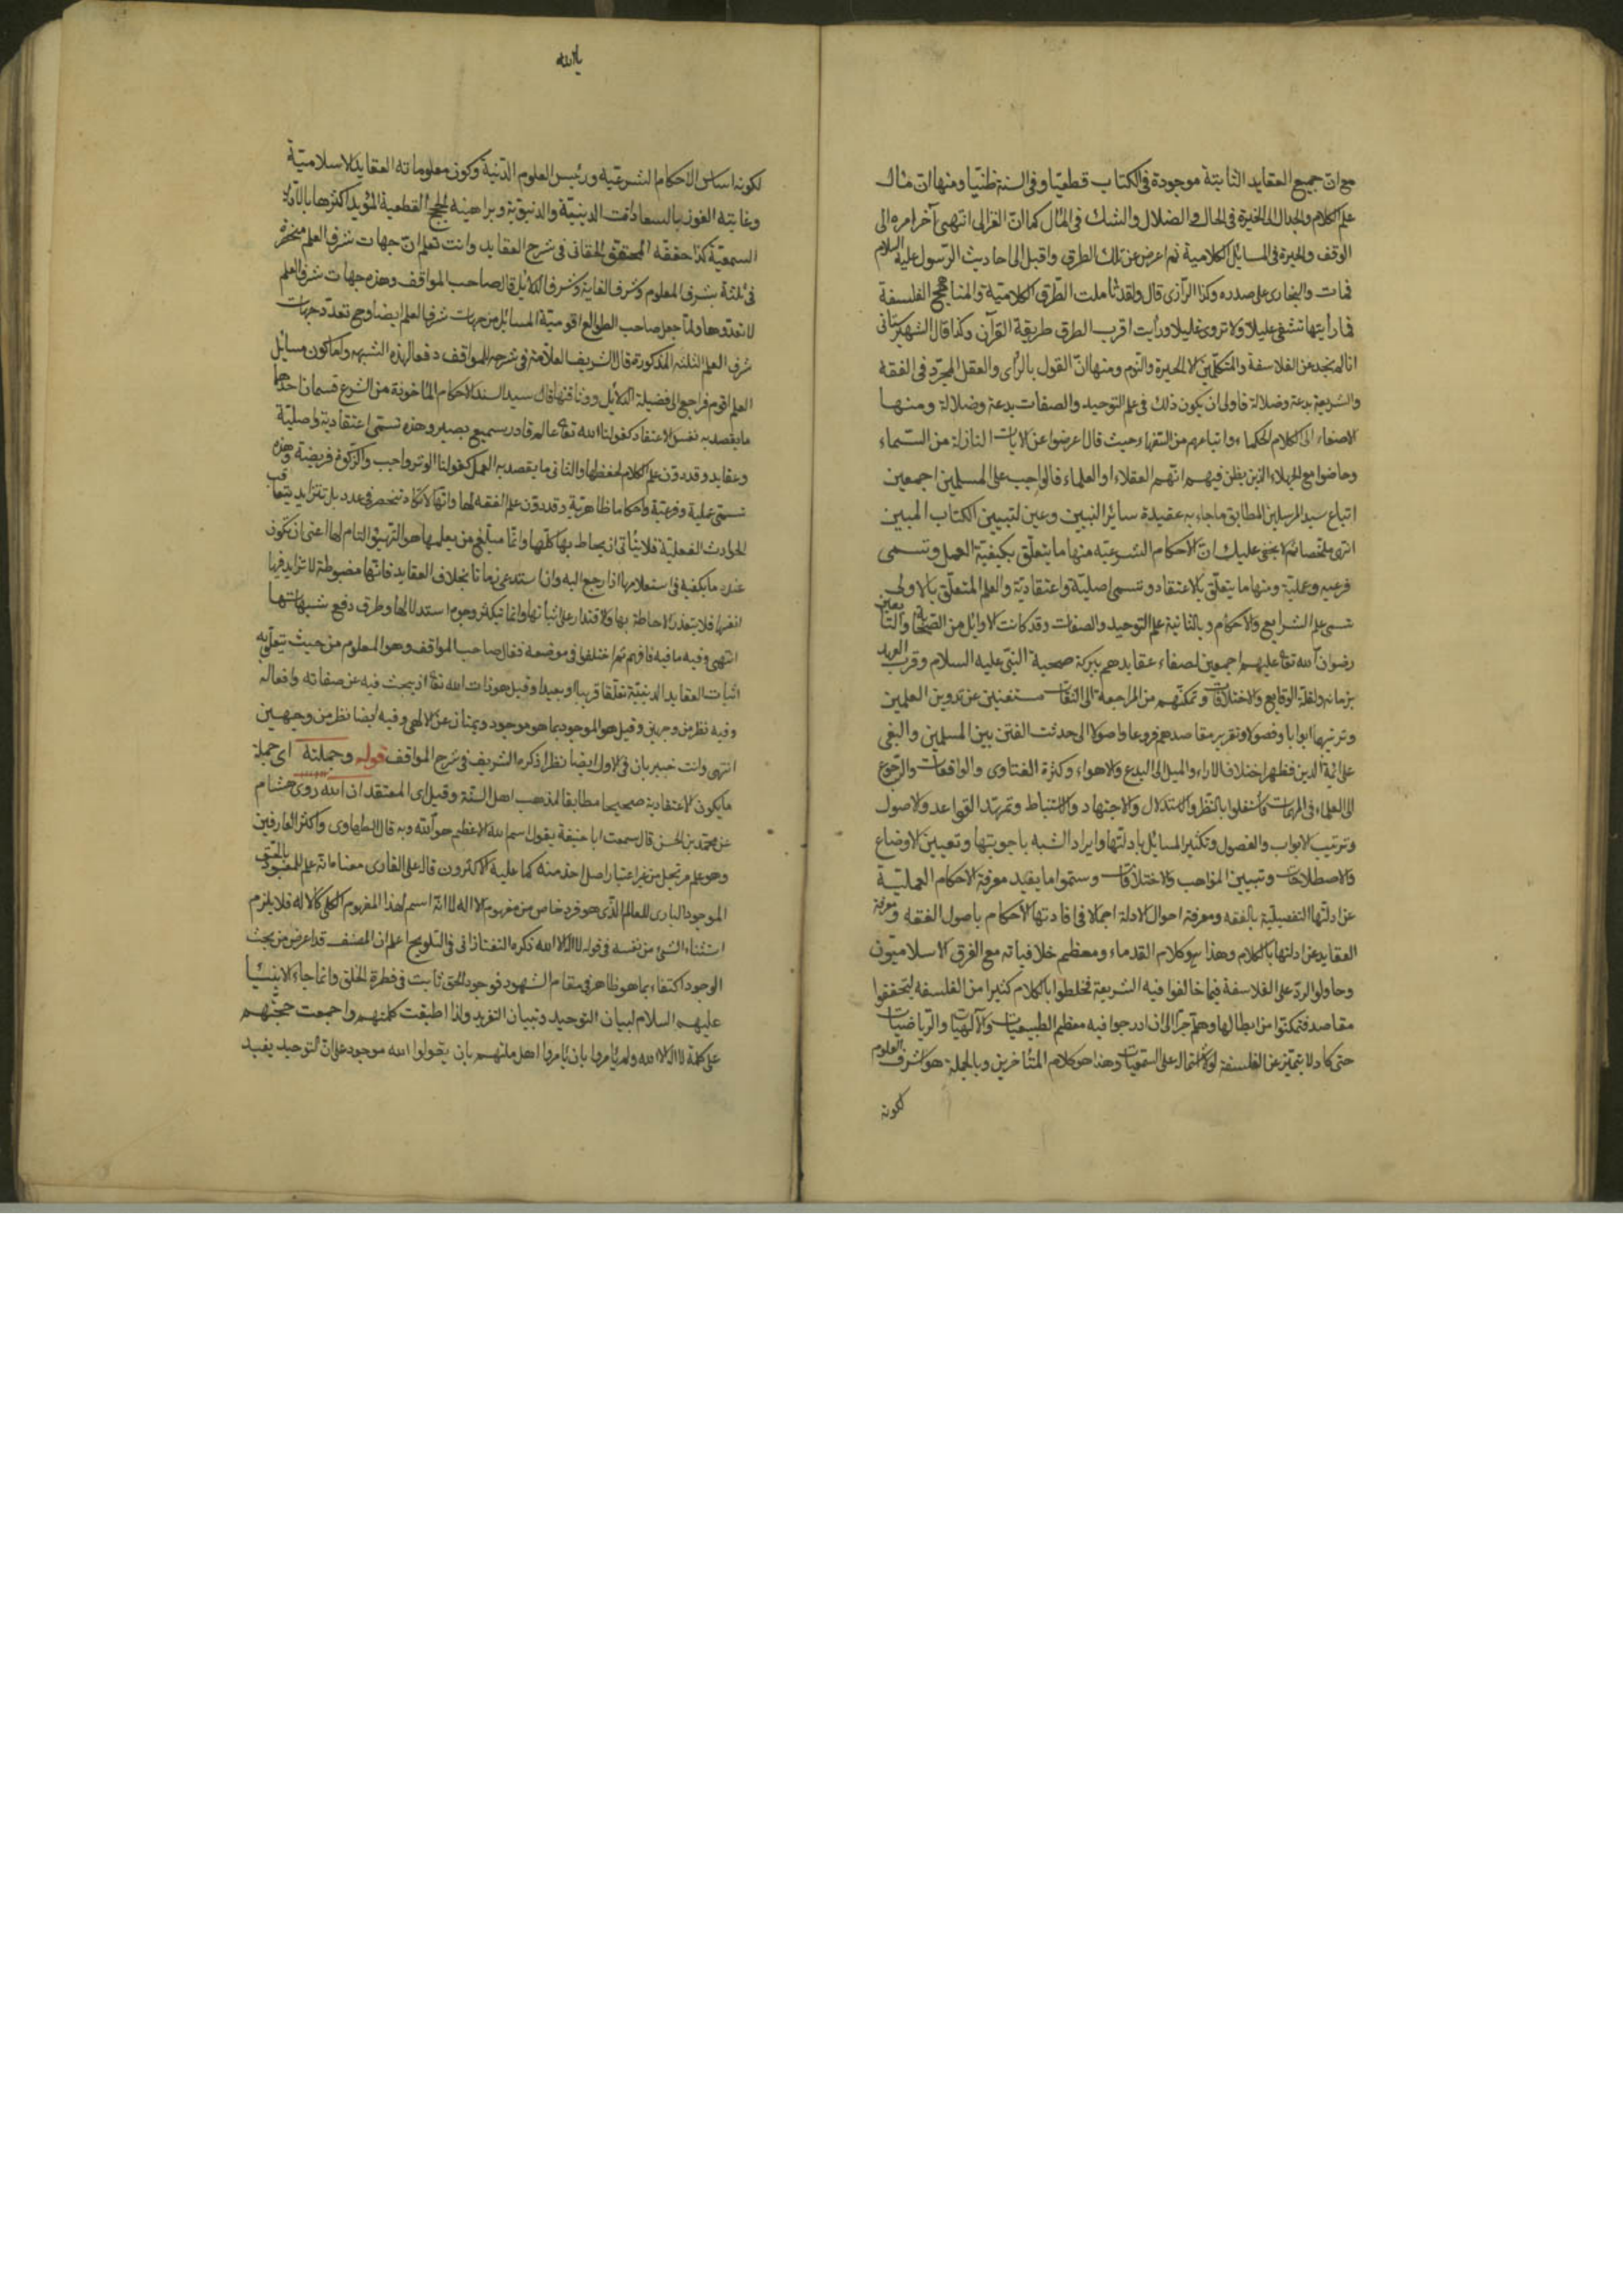 مع ان جميع العقايد الثابتة موجودة فى الكتاب قطعيّا وفى السنة ظنّيا ومنها ان مآل
علم الكلام والجدال الى الحيرة فى الحال والضلال والشك فى المآل كما ان الغزالى انتهى آخر امره الى
الوقف والحيرة فى المسايل الكلامية ثم اعرض عن تلك الطرق واقبل الى احاديث الرّسول عليه السلام
فمات والبخارى على صدره وكذا الرّازى قال ولقد تأملت الطّرق الكلاميّة والمناهج الفلسفة
فما رأيتها تشفى عليلا ولا تروى غليلا ورأيت اقرب الطرق طريقة القرآن وكذا قال الشهرستانى
انا لم نجد عن الفلاسفة والمتكلّمين الا الحيرة والنّدم ومنها انّ القول بالرّأى والعقل المجرّد فى الفقه
والشريعة بدعة وضلالة فاولى ان يكون ذلك فى علم التوحيد والصفات بدعة وضلالة ومنها
الاصغاء الى كلام الحكماء واتباعهم من السّفهاء حيث قال اعرضوا عن الايات النازلة من السّماء
وخاضوا مع الجهلاء الذين يظن فيهم انّهم العقلاء او العلماء فالواجب على المسلمين اجمعين
اتباع سيد المرسلين المطابق ما جاء به عقيدة سائر النبين وعين لتبيين الكتاب المبين
انتهى ملخصا ثم لا يخفى عليك انّ الاحكام الشرعيّه منها ما يتعلّق بكيفيّة العمل وتسمى
فرعيه وعمليّة ومنها ما يتعلّق بالاعتقاد وتسمى اصليّة واعتقاديّة والعلم المتعلّق بالاولى
تسمى علم الشرايع والاحكام وبالثانية علم التوحيد والصفات وقد كانت الاوايل من الصّحابة والتّابعين
رضوان الله تعا عليهم اجمعين لصفاء عقايدهم ببركة صحبة النبّى عليه السلام وقرب العهد
بزمانه ولقلّة الوقايع والاختلافات وتمكّنهم من المراجعة الى الثقات مستغنين عن تدوين العلمين
وترتيبها ابوابا وفصولا وتقرير مقاصدهم فروعا واصولا الى حدثت الفتن بين المسلمين والبغى
على ائمة الدين فظهر اختلاف الاراء والميل الى البدع والاهواء وكثرة الفتاوى والواقعات والرّجوع
الى العلماء فى المهمات فاشتغلوا بالنّظر والاستدلال والاجتهاد والاستنباط وتمهيد القواعد والاصول
وترتيب الابواب والفصول وتكثير المسايل بادلّتها وايراد الشبه باجوبتها وتعيين الاوضاع
والاصطلاحات وتبيين المذاهب والاختلافات وسمّوا ما يفيد معرفة الاحكام العمليّة
عن ادلّتها التفصيليّة بالفقه ومعرفة احوال الادلة اجمالا فى افادتها الاحكام باصول الفقه ومعرفة
العقايد عن ادلتها بالكلام وهذا هو كلام القدماء ومعظم خلافياته مع الفرق الاسلاميّون
وحاولوا الردّ على الفلاسفة فيما خالفوا فيه الشريعة فخلطوا بالكلام كثيرا من الفلسفه ليتحققوا
مقاصد فتمكنوا من ابطالها وهلمّ جرّا الى ان ادرجوا فيه معظم الطبيعيات والآلهيّات والرّياضيّات
حتى كاد لا يتميّز عن الفلسفة لولا اشتماله على السّمعيات وهذا هو كلام المتأخرين وبالجملة هو اشرف العلوم
لكونه
يا الله
لكونه اساس الاحكام الشرعيّه ورئيس العلوم الدّينية وكون معلوماته العقايد الاسلاميّة
وغايته الفوز بالسعادات الدينيّة والدنيويّة وبراهينه الحجج القطعية المؤيد اكثرها بالادلّة
السمعيّة كذا حققه المحقق الحقانى فى شرح العقايد وانت تعلم انّ جهات شرف العلم منحصرة
فى ثلثة بشرف المعلوم وشرف الغاية وشرف الدلايل قال صاحب المواقف وهذه جهات شرف العلم
لا تعدوها ولمّا جعل صاحب الطوالع اقوميّة المسائل من جهات شرف العلم ايضا وح تعدّد جهات
شرف العلم الثلثه المذكورة قال الشريف العلامة فى شرحه للمواقف دفعا لهذه الشبهه واما كون مسائل
العلم اقوم فراجع الى فضيلة الدلايل ووثاقتها قال سيد السند الاحكام المأخوذة من الشرع قسمان احدهما
ما يقصد به نفس الاعتقاد كقولنا الله تعا عالم قادر سميع بصير وهذه تسمى اعتقادية واصليّة
وعقايد وقد دوّن علم الكلام لحفظها والثانى ما يقصد به العمل كقولنا الوتر واجب والزّكوة فريضة وهذه
تسمى عملية وفرعيّة واحكاما ظاهريّة وقد دوّن علم الفقه لها وانّها لا تكاد تنحصر فى عدد بل تتزايد بتعاقب
الحوادث الفعليّة فلا يتأتى ان يحاط بها كلّها وانّما مبلغ من يعلمها هو التّهيئ التام لها اعنى ان يكون
عنده ما يكفيه فى استعلامها اذا رجع اليه وان استدعى زمانا بخلاف العقايد فانّها مضبوطة لا تزايد فيها
انفسها فلا يتعذر الاحاطة بها والاقتدار على اثباتها وانما تتكثر وجوه استدلالها وطرق دفع شبهاتها
انتهى وفيه ما فيه فافهم ثم اختلفوا فى موضعه فقال صاحب المواقف وهو المعلوم من حيث يتعلّق به
اثبات العقايد الدينيّة تعلّقا قريبا او بعيدا وقيل هو ذات الله تعا اذ يبحث فيه عن صفاته وافعاله
وفيه نظر من وجهين وقيل هو الموجود بما هو موجود ويمتاز عن الالهى وفيه ايضا نظر من وجهين
انتهى وانت خبير بان فى الاول ايضا نظرا ذكره الشريف فى شرح المواقف قوله وجملته اى جملة
ما يكون الاعتقادية صحيحا مطابقا لمذهب اهل السنّة وقيل اى المعتقد ان الله روى هشام
عن محمّد بن الحسن قال سمعت ابا حنيفة يقول اسم الله الاعظم هو الله وبه قال الطحاوى واكثر العارفين
وهو علم مرتجل من غير اعتبار اصل اخذ منه كما عليه الاكثرون قال على القارى معناه انّه علم للمعبود بالحق
الموجود البارى للعالم الّذى هو فرد خاص من مفهوم الاله لا انّه اسم لهذا المفهوم الكلى كالاله فلا يلزم
استثناء الشئ من نفسه فى قوله لا اله الا الله ذكره التفتازانى فى التلويح اعلم ان المصنف قد اعرض من بحث
الوجود اكتفاء بما هو ظاهر فى مقام الشهود فوجود الحق ثابت فى فطرة الخلق وانما جاء الانبيا
عليهم السلام لبيان التوحيد وتبيان التفريد ولذا اطبقت كلمتهم واجمعت حجّتهم
على كلمة لا اله الا الله ولم يأمروا بان يأمروا اهل ملتهم بان يقولوا الله موجود على انّ التوحيد يفيد